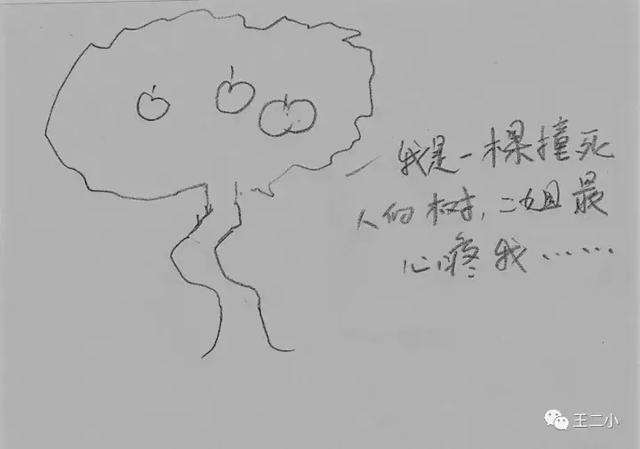 我是一棵撞死
人的树，二姐最
心疼我……
王二小